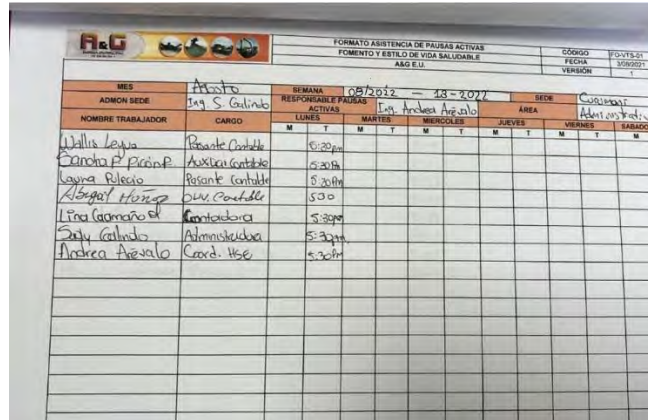 A&G
FORMATO ASISTENCIA DE PAUSAS ACTIVAS
FOMENTO Y ESTILO DE VIDA SALUDABLE
A&G E.U.
CÓDIGO FO-VTS-01
FECHA 3/08/2021
VERSIÓN 1
MES Agosto SEMANA 08/2022 — 13-2022 SEDE
ADMON SEDE Ing. S. Galindo RESPONSABLE PAUSAS ACTIVAS Ing. Andrea Arévalo ÁREA
NOMBRE TRABAJADOR CARGO LUNES MARTES MIERCOLES JUEVES VIERNES SABADO
M T M T M T M T M T M
Wallis Leyva Pasante Contable 5:30pm
Sandra P. Auxiliar Contable 5:30Pm
Laura Pulecio Pasante Contable 5:30Pm
Abigail Contable 530
Lina Caamaño Contadora 5:30pm
Galindo Administradora 5:30pm
Andrea Arévalo Coord. HSE 5:30Pm